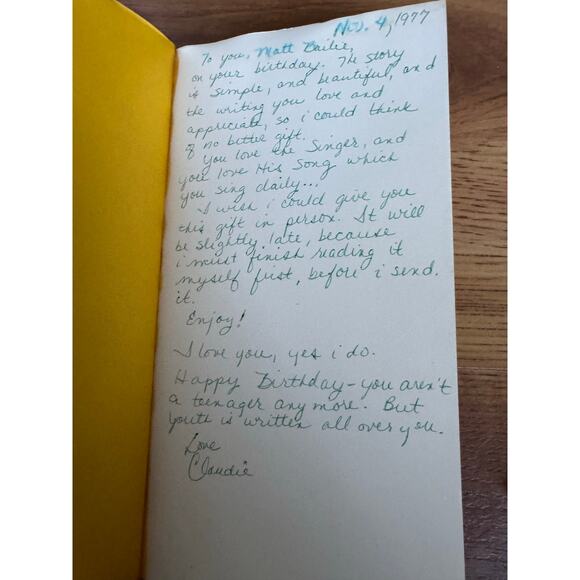 Nov. 4, 1977
To you, Matt Bailie,
on your birthday. The story
is simple, and beautiful, and
the writing you love and
appreciate, so i could think
of no better gift.
You love the Singer, and
you love His Song which
you sing daily...
I wish i could give you
this gift in person. It will
be slightly late, because
i must finish reading it
myself first, before i send
it.
Enjoy!
I love you, yes i do.
Happy Birthday - you aren't
a teenager any more. But
youth is written all over you.
Love
Claudie